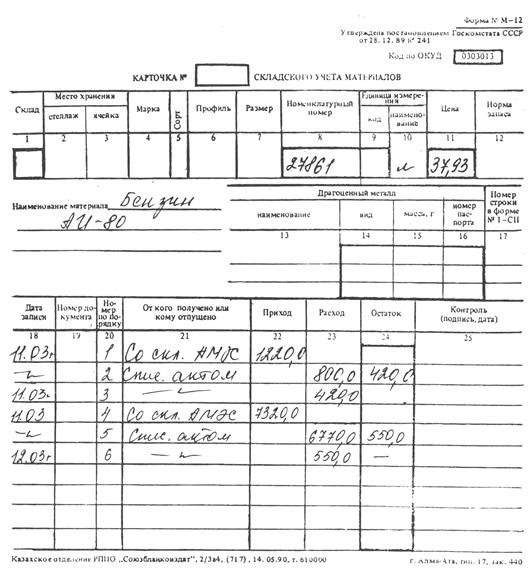 Форма № М–12
Утверждена постановлением Госкомстата СССР
от 28. 12. 89 № 241
Код по ОКУД 0303013
КАРТОЧКА № СКЛАДСКОГО УЧЕТА МАТЕРИАЛОВ
Склад Место хранения Марка Сорт Профиль Размер Номенклатурный номер Единица измерения Цена Норма запаса
стеллаж ячейка код наименование
1 2 3 4 5 6 7 8 9 10 11 12
27861 л 37,93
Наименование материала Бензин
АИ-80
Драгоценный металл Номер строки в форме № 1–СН
наименование вид масса, г номер паспорта
13 14 15 16 17
Дата записи Номер документа Номер по порядку От кого получено или кому отпущено Приход Расход Остаток Контроль (подпись, дата)
18 19 20 21 22 23 24 25
11.03г 1 Со скл. 1220,0
–"– 2 Спис. актом 800,0 420,0
11.03г 3 –"– 420,0
11.03 4 Со скл. АМЭС 7320,0
–"– 5 Спис. актом 6770,0 550,0
12.03г 6 –"– 550,0 —
Казахское отделение РППО „Союзбланкоиздат", 2/3а4, (717) , 14. 05. 90, т. 610000
г. Алма-Ата, тип. 17, зак. 440